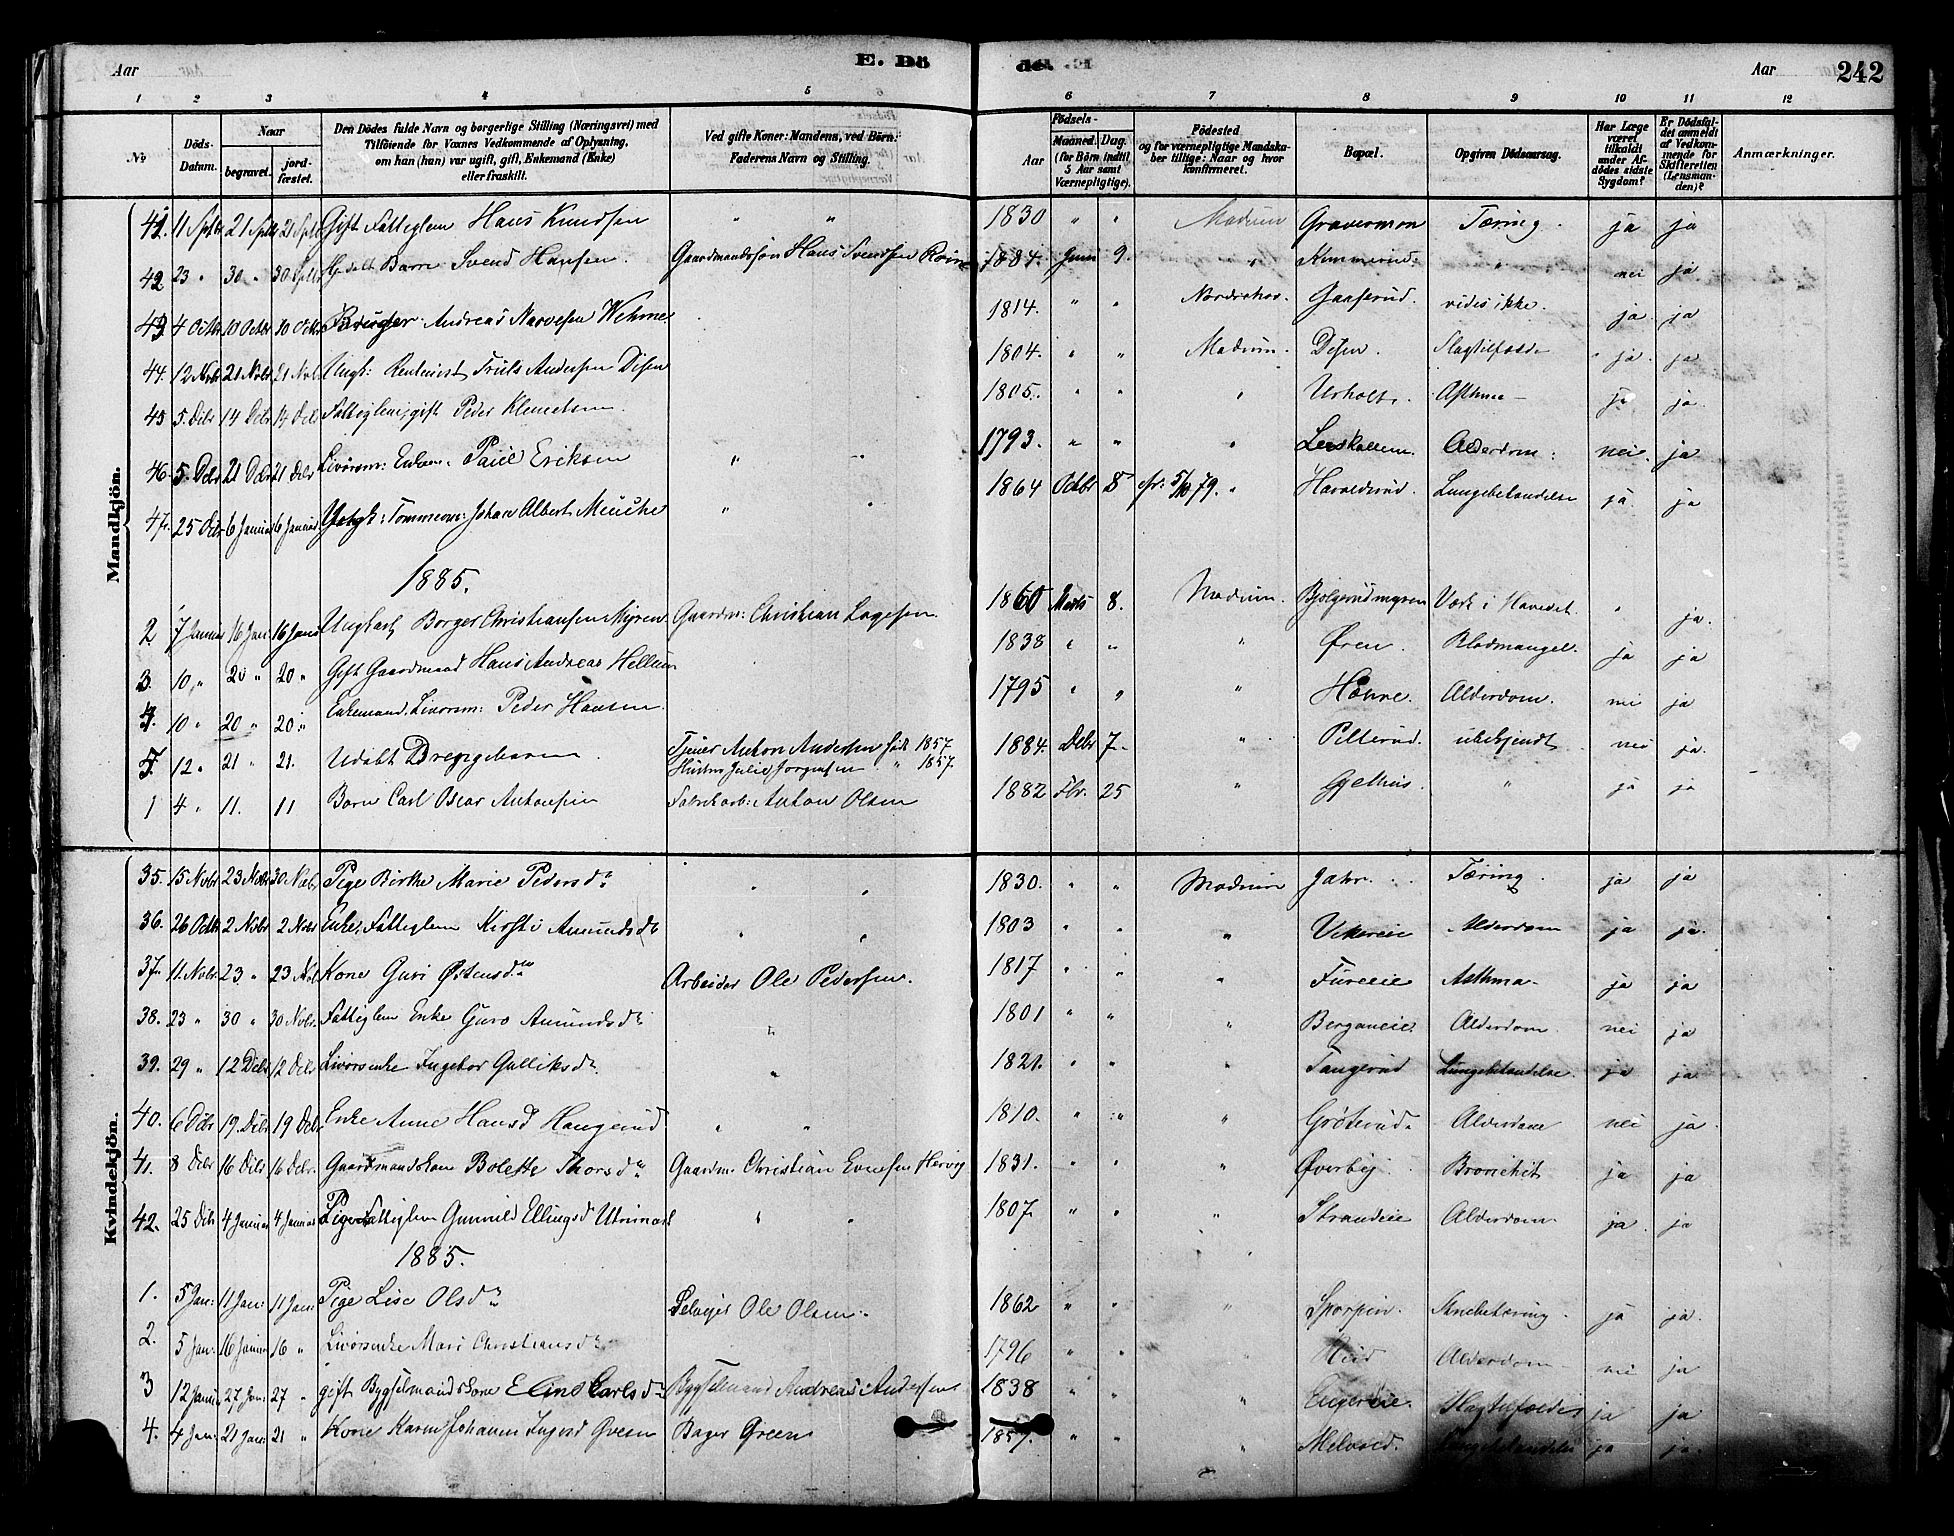 Aar
E. Dö
de.
Aar
242
1 2 3 4 5 6 7 8 9 10 11 12
No
Döds-Datum.
Naar
begravet.
jordfæstet.
Den Dödes fulde Navn og borgerlige Stilling (Næringsvei) med
Tilföiende for Voxnes Vedkommende af Oplysning,
om han (hun) var ugift, gift, Enkemand (Enke)
eller fraskilt.
Ved gifte Koner: Mandens, ved Börn:
Faderens Navn og Stilling.
Födsels-
Aar
Maaned. Dag.
(for Börn indtil
5 Aar samt
Værnepligtige).
Födested
og for værnepligtige Mandskaber tillige: Naar og hvor
konfirmeret.
Bopæl.
Opgiven Dödsaarsag.
Har Læge
været
tilkaldt
under Afdödes sidste
Sygdom?
Er Dödsfaldet anmeldt
af Vedkommende for
Skifteretten
(Lensmanden)?
Anmærkninger.
Mandkjön.
41. 11 Sptbr 21 Sptbr 21 Sptbr Gift Fattiglem Hans Knudsen " " 1830 " " Modum Gravermoen Tæring. ja ja
42 23 " 30 " 30 Sptbr Barn Svend Hansen. Gaardmandssøn Hans Svendsen 1884. Juni 9. " " nei ja
43 4 Octbr 10 Octbr 10 Octbr Andreas Narvesen Wehme. 1814. " " Norderhov. Gaaserud. vides ikke. ja ja
44. 12 Novbr 21 Novbr 21 Novbr Ungk: Rentenist Truls Andersen Disen 1804. " " Modum. Disen. Slagtilfælde ja. ja
45 5. Debr 14 Debr 14 Debr Fattiglem, gift Peder Klemetsen. 1805. " " " Asthma ja ja.
46. 5. Debr 21 Debr 21 Debr Livörsm: Enkem. Paul Eriksen " 1793. " " " Alderdom. nei. ja
47. 25 Debr 6 Januar 6 Januar Ungk: Tømmerm: Johan Albert " " 1864 Octbr 8 cfr: 5/10 79. " Haraldsrud. Lungebetændelse ja. ja
1885.
2 7 Januar 16 Jan: 16 Januar Ungkarl Borger Christiansen Myren Gaardm: Christian Lagesen. 1860 Marts 8. Modum. Bjølgerudmyren Værk i Hovedet. " ja.
3. 10 " 20 " 20 " Gift Gaardmand Hans Andreas Hellum 1838 " " " Øren. Blodmangel. ja ja
4. 10 " 20 " 20 " Enkemand, Livörsm: Peder Hansen. 1795 " " " Hovne. Alderdom. nei ja
5. 12 " 21 " 21. Udøbt Drengebarn. Tjener Anton Andersen født 1857. 1884. Debr 7 " Pilterud. ubekjendt nei ja.
Hustru Julie Jørgensen " 1857.
1 4 " 11. 11 Barn Carl Oscar Antonsen Fabrikarb: Anton Olsen 1882 Fbr. 25 " Gjethus. " ja ja
Kvindekjön.
35. 15 Novbr 23 Novbr 30 Novbr Pige Birthe Marie Pedersdr " " 1830. " " Modum Jahr. Tæring. ja ja
36. 26 Octbr 2 Novbr 2 Novbr Enke, Fattiglem Kirsti Amundsdr " " 1803 " " " Vikereie Alderdom ja ja.
37. 11. Novbr 23 " 23 Novbr Kone Guri Østensdr Arbeider Ole Pedersen. 1817 " " " Fureeie Asthma ja ja
38. 23 " 30 " 30 Novbr. Fattiglem Enke Guro Amundsdr " 1801 " " " Berganeie. Alderdom. nei ja
39. 29 " 12 Debr 12 Debr Livörsenke Ingebor Gulliksdr. " 1821. " " " Tangerud Lungebetændelse. ja ja
40. 6 Debr 19. Debr 19 Debr. Enke Anne Hansd Haugerud " " 1810. " " " Grøterud. Alderdom nei ja
41. 8 Debr 16 Debr 16 Debr. Gaardmandskone Bolette Thorsdr Gaardm: Christian Evensen Hervig 1831. " " " Øverby. Bronchit ja ja
42. 25 Debr 4 Januar 4 Januar Pige Fattiglem Gunnild Ellingsd " " 1807. " " " Strandeie Alderdom. ja. ja
1885.
1. 5 Jan: 11 Jan: 11 Jan: Pige Lise Olsdr Selveier Ole Olsen. 1862 " " " ja ja.
2. 5 Jan: 16 Januar 16 " Livörsenke Mari Christiansdr. 1796 " " Alderdom nei ja
3 12 Januar 27 Jan: 27 " gift Bygselmandskone Eline Carlsdr Bygselmand Andreas Andersen 1838 " " " Slagtilfælde ja ja
4. 4 Jan: 21 Jan: 21 " Kone Karen Johanne Green Bager Green 1857. " " " Lungebetændelse ja ja.